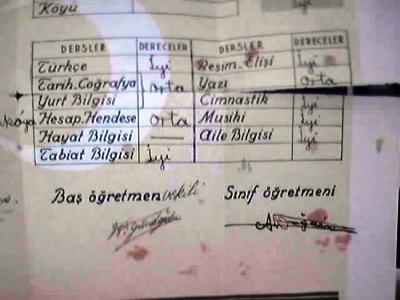 Koyu
DERSLER DERECELER DERSLER DERECELER
Türkçe İyi Resim.Elişi İyi
Tarih.Coğrafya orta Yazı orta
Yurt Bilgisi Cimnastik İyi
Hesap.Hendese orta Musihi İyi
Hayat Bilgisi Aile Bilgisi İyi
Tabiat Bilgisi İyi
Baş öğretmen vekili Sınıf öğretmeni